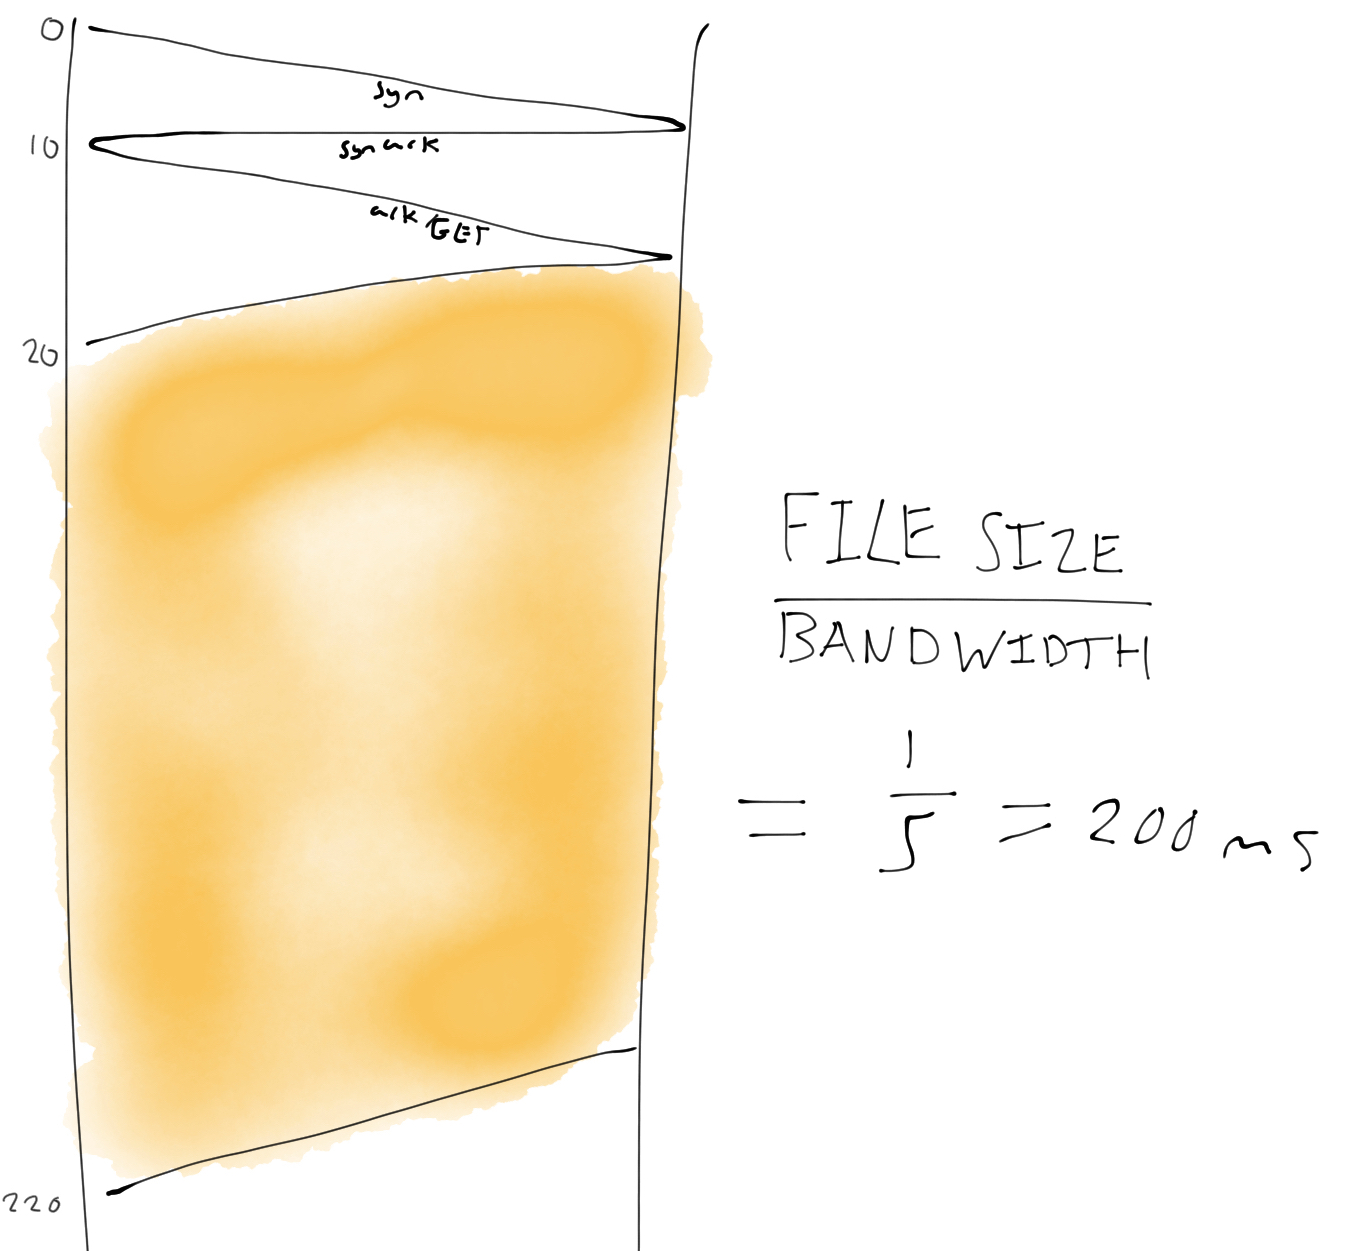 0
syn
10
synack
ack GET
20
FILE SIZE
BANDWIDTH
= 1/5 = 200 ms
220